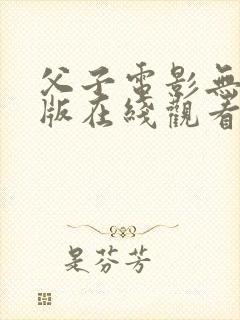 父子電影無
版在綫觀看
是芬芳